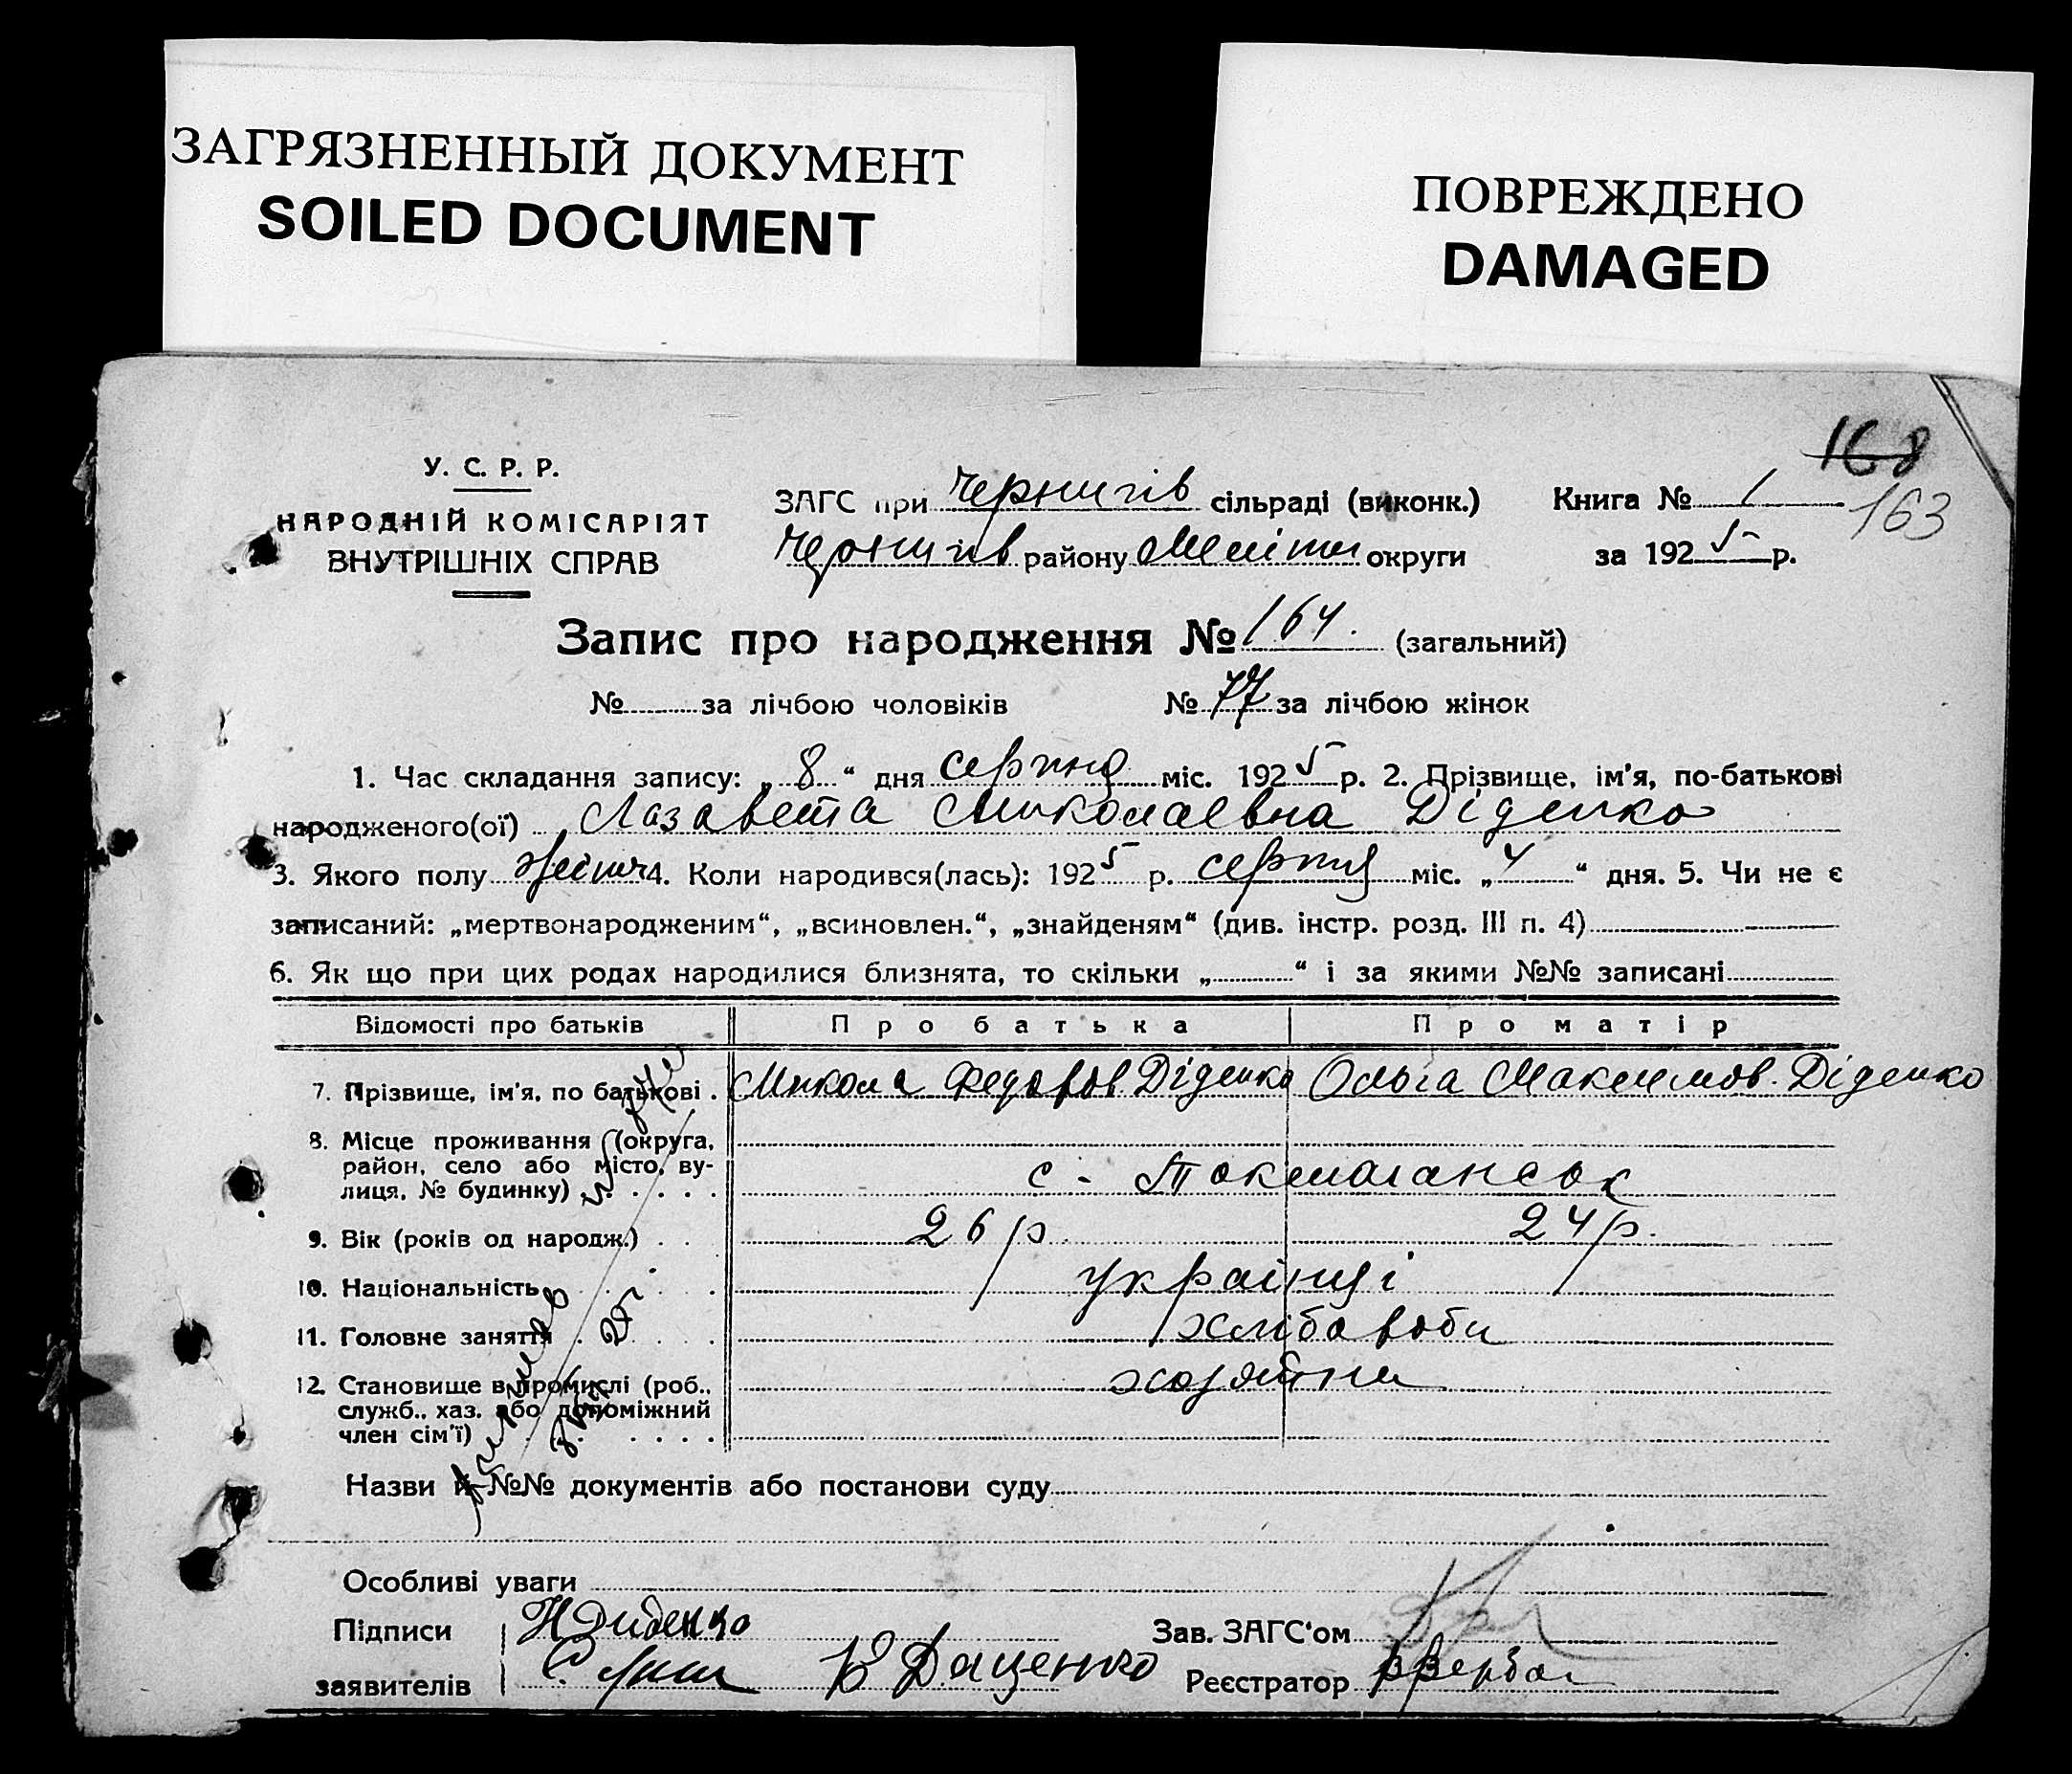 ЗАГРЯЗНЕННЫЙ ДОКУМЕНТ
SOILED DOCUMENT
ПОВРЕЖДЕНО
DAMAGED
168
163
У. С. Р. Р.
НАРОДНІЙ КОМІСАРІЯТ
ВНУТРІШНІХ СПРАВ
ЗАГС при Чернигів сільраді (виконк.) Книга № 1
Чернигів району Меліт округи за 1925 р.
Запис про народження № 164. (загальний)
№ за лічбою чоловіків № 77 за лічбою жінок
1. Час складання запису: „8“ дня серпня міс. 1925 р. 2. Прізвище, ім'я, по-батькові
народженого(ої) Лазавета Миколаевна Діденко
3. Якого полу жіноч 4. Коли народився(лась): 1925 р. серпня міс. „4“ дня. 5. Чи не є
записаний: „мертвонародженим“, „всиновлен.“, „знайденям“ (див. інстр. розд. III п. 4)
6. Як що при цих родах народилися близнята, то скільки „ “ і за якими №№ записані
Відомості про батьків Про батька Про матір
7. Прізвище, ім'я, по батькові . Микола Федоров Діденко Ольга Максимов. Діденко
8. Місце проживання (округа,
район, село або місто, ву-
лиця, № будинку) . . . . с - Токмачансок
9. Вік (років од народж.) . . 26 р 24 р.
10. Національність . . . . українці
11. Головне заняття . . . . хлібороби
12. Становище в промислі (роб.,
служб., хаз. або допоміжний
член сім'ї) . . . . хозяїни
Назви й №№ документів або постанови суду
Особливі уваги
Підписи Н Диденко Зав. ЗАГС'ом
заявителів В Даценко Реєстратор